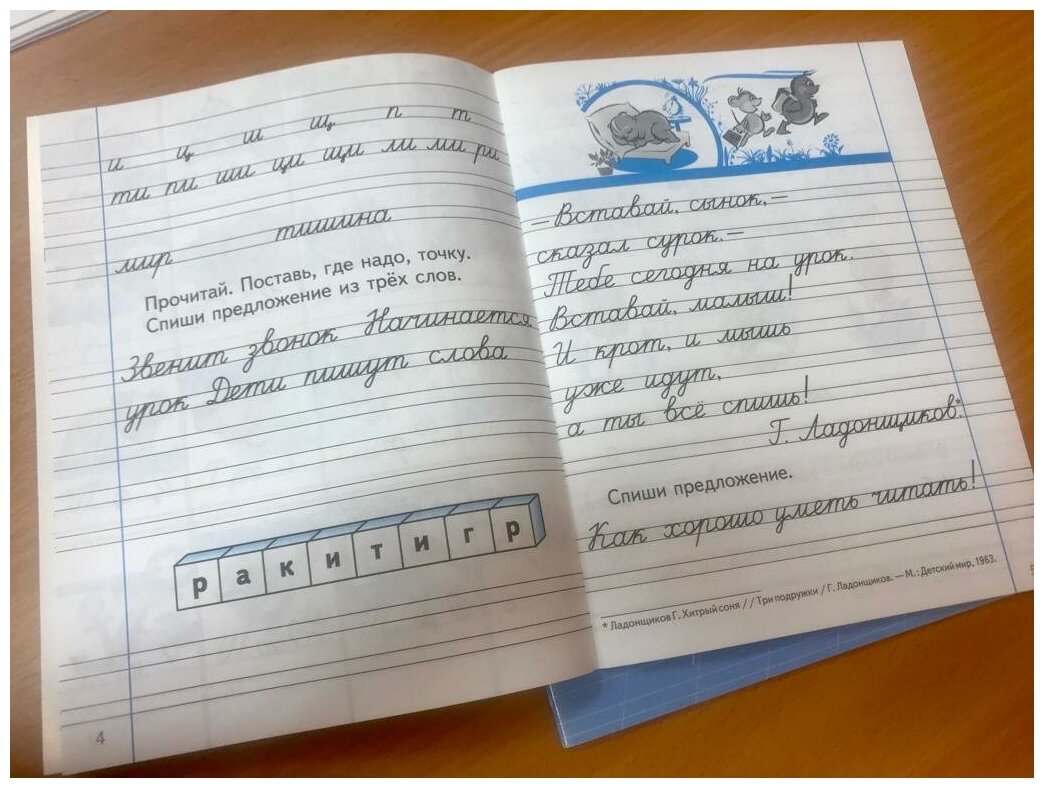 и ц ш щ п т
ти пи ши ци щи ли ми ри
мир тишина
Прочитай. Поставь, где надо, точку.
Спиши предложение из трёх слов.
Звенит звонок Начинается
урок Дети пишут слова
ракитигр
4
— Вставай, сынок, —
сказал сурок. —
Тебе сегодня на урок.
Вставай, малыш!
И крот, и мышь
уже идут,
а ты всё спишь!
Г. Ладонщиков*
Спиши предложение.
Как хорошо уметь читать!
* Ладонщиков Г. Хитрый соня // Три подружки / Г. Ладонщиков. — М. : Детский мир, 1963.